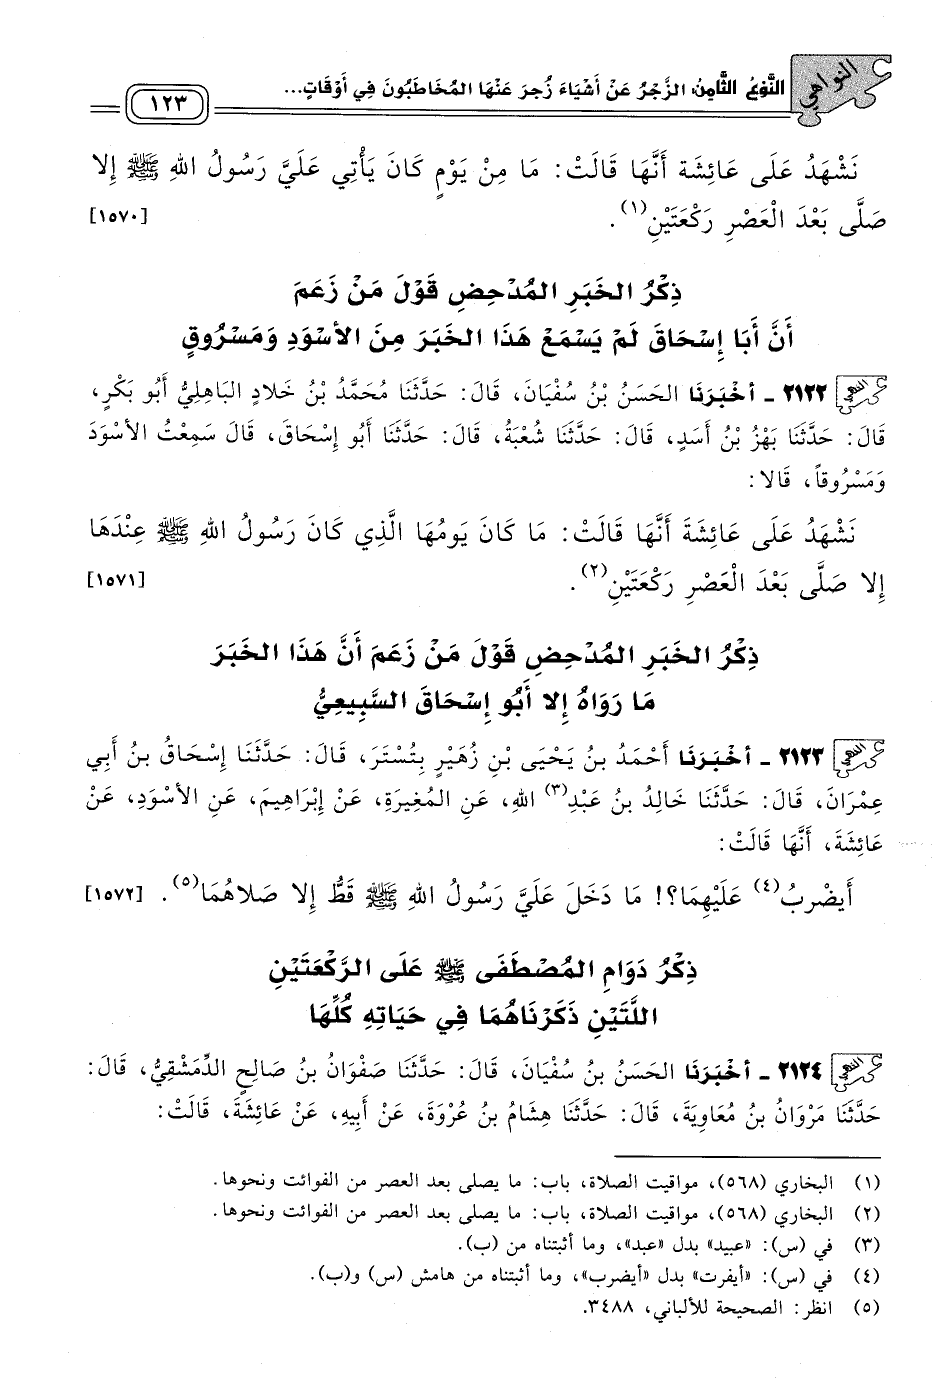 النواهي
النَّوْعُ الثَّامِنُ: الزَّجْرُ عَنْ أَشْيَاءَ زُجِرَ عَنْهَا المُخَاطَبُونَ فِي أَوْقَاتٍ...
١٢٣
نَشْهَدُ عَلَى عَائِشَة أَنَّهَا قَالَتْ: مَا مِنْ يَوْمٍ كَانَ يَأْتِي عَلَيَّ رَسُولُ اللهِ ﷺ إِلا
صَلَّى بَعْدَ الْعَصْرِ رَكْعَتَيْنِ(١). [١٥٧٠]
ذِكْرُ الخَبَرِ المُدْحِضِ قَوْلَ مَنْ زَعَمَ
أَنَّ أَبَا إِسْحَاقَ لَمْ يَسْمَعْ هَذَا الخَبَرَ مِنَ الأَسْوَدِ وَمَسْرُوقٍ
٢١٢٢ - أَخْبَرَنَا الحَسَنُ بْنُ سُفْيَانَ، قَالَ: حَدَّثَنَا مُحَمَّدُ بْنُ خَلادٍ البَاهِلِيُّ أَبُو بَكْرٍ،
قَالَ: حَدَّثَنَا بَهْزُ بْنُ أَسَدٍ، قَالَ: حَدَّثَنَا شُعْبَةُ، قَالَ: حَدَّثَنَا أَبُو إِسْحَاقَ، قَالَ سَمِعْتُ الأَسْوَدَ
وَمَسْرُوقاً، قَالا:
نَشْهَدُ عَلَى عَائِشَةَ أَنَّهَا قَالَتْ: مَا كَانَ يَومُهَا الَّذِي كَانَ رَسُولُ اللهِ ﷺ عِنْدَهَا
إِلا صَلَّى بَعْدَ الْعَصْرِ رَكْعَتَيْنِ(٢). [١٥٧١]
ذِكْرُ الخَبَرِ المُدْحِضِ قَوْلَ مَنْ زَعَمَ أَنَّ هَذَا الخَبَرَ
مَا رَوَاهُ إِلا أَبُو إِسْحَاقَ السَّبِيعِيُّ
٢١٢٣ - أَخْبَرَنَا أَحْمَدُ بنُ يَحْيَى بْنِ زُهَيْرٍ بِتُسْتَرَ، قَالَ: حَدَّثَنَا إِسْحَاقُ بنُ أَبِي
عِمْرَانَ، قَالَ: حَدَّثَنَا خَالِدُ بنُ عَبْدِ(٣) اللهِ، عَنِ المُغِيرَةِ، عَنْ إِبْرَاهِيمَ، عَنِ الأَسْوَدِ، عَنْ
عَائِشَةَ، أَنَّهَا قَالَتْ:
أَيضْرِبُ(٤) عَلَيْهِمَا؟! مَا دَخَلَ عَلَيَّ رَسُولُ اللهِ ﷺ قَطُّ إِلا صَلاهُمَا(٥). [١٥٧٢]
ذِكْرُ دَوَامِ المُصْطَفَى ﷺ عَلَى الرَّكْعَتَيْنِ
اللَّتَيْنِ ذَكَرْنَاهُمَا فِي حَيَاتِهِ كُلِّهَا
٢١٢٤ - أَخْبَرَنَا الحَسَنُ بنُ سُفْيَانَ، قَالَ: حَدَّثَنَا صَفْوَانُ بنُ صَالِحٍ الدِّمَشْقِيُّ، قَالَ:
حَدَّثَنَا مَرْوَانُ بنُ مُعَاوِيَةَ، قَالَ: حَدَّثَنَا هِشَامُ بنُ عُرْوَةَ، عَنْ أَبِيهِ، عَنْ عَائِشَةَ، قَالَتْ:
(١) البخاري (٥٦٨)، مواقيت الصلاة، باب: ما يصلى بعد العصر من الفوائت ونحوها.
(٢) البخاري (٥٦٨)، مواقيت الصلاة، باب: ما يصلى بعد العصر من الفوائت ونحوها.
(٣) في (س): «عبيد» بدل «عبد»، وما أثبتناه من (ب).
(٤) في (س): «أيفرت» بدل «أيضرب»، وما أثبتناه من هامش (س) و(ب).
(٥) انظر: الصحيحة للألباني، ٣٤٨٨.